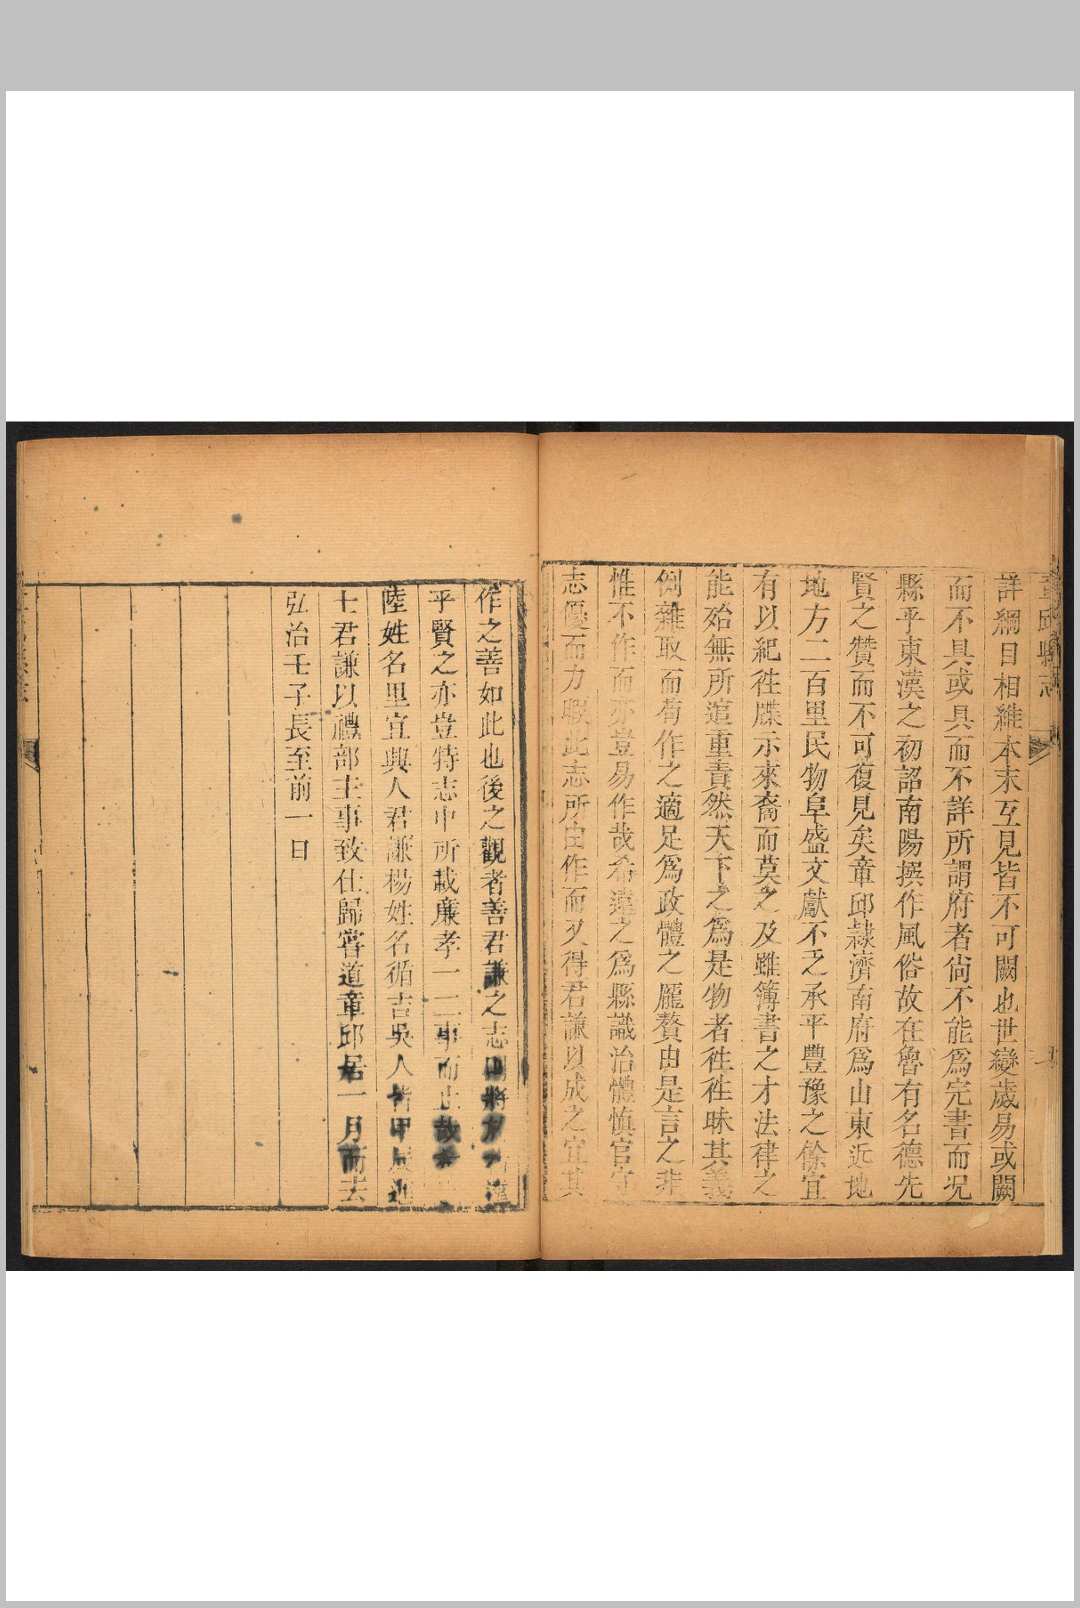 章邱縣志
詳綱目相維本末互見皆不可闕也世變歲易或闕
而不具或具而不詳所謂府者尙不能爲完書而况
縣乎東漢之初詔南陽撰作風俗故在魯有名德先
賢之贊而不可復見矣章邱隷濟南府爲山東近地
地方二百里民物阜盛文獻不乏承平豐豫之餘宜
有以紀徃牒示來裔而莫之及雖簿書之才法律之
能殆無所逭重責然天下之爲是物者徃徃昧其義
例雜取而苟作之適足爲政體之龐贅由是言之非
惟不作而亦豈易作哉希遠之爲縣識治體愼官守
志優而力暇此志所由作而又得君謙以成之宜其
作之善如此也後之觀者善君謙之志
平賢之亦豈特志中所載廉孝一二事而止故
陸姓名里宜興人君謙楊姓名循吉吳人皆甲辰進
士君謙以禮部主事致仕歸嘗道章邱居一月而去
弘治壬子長至前一日